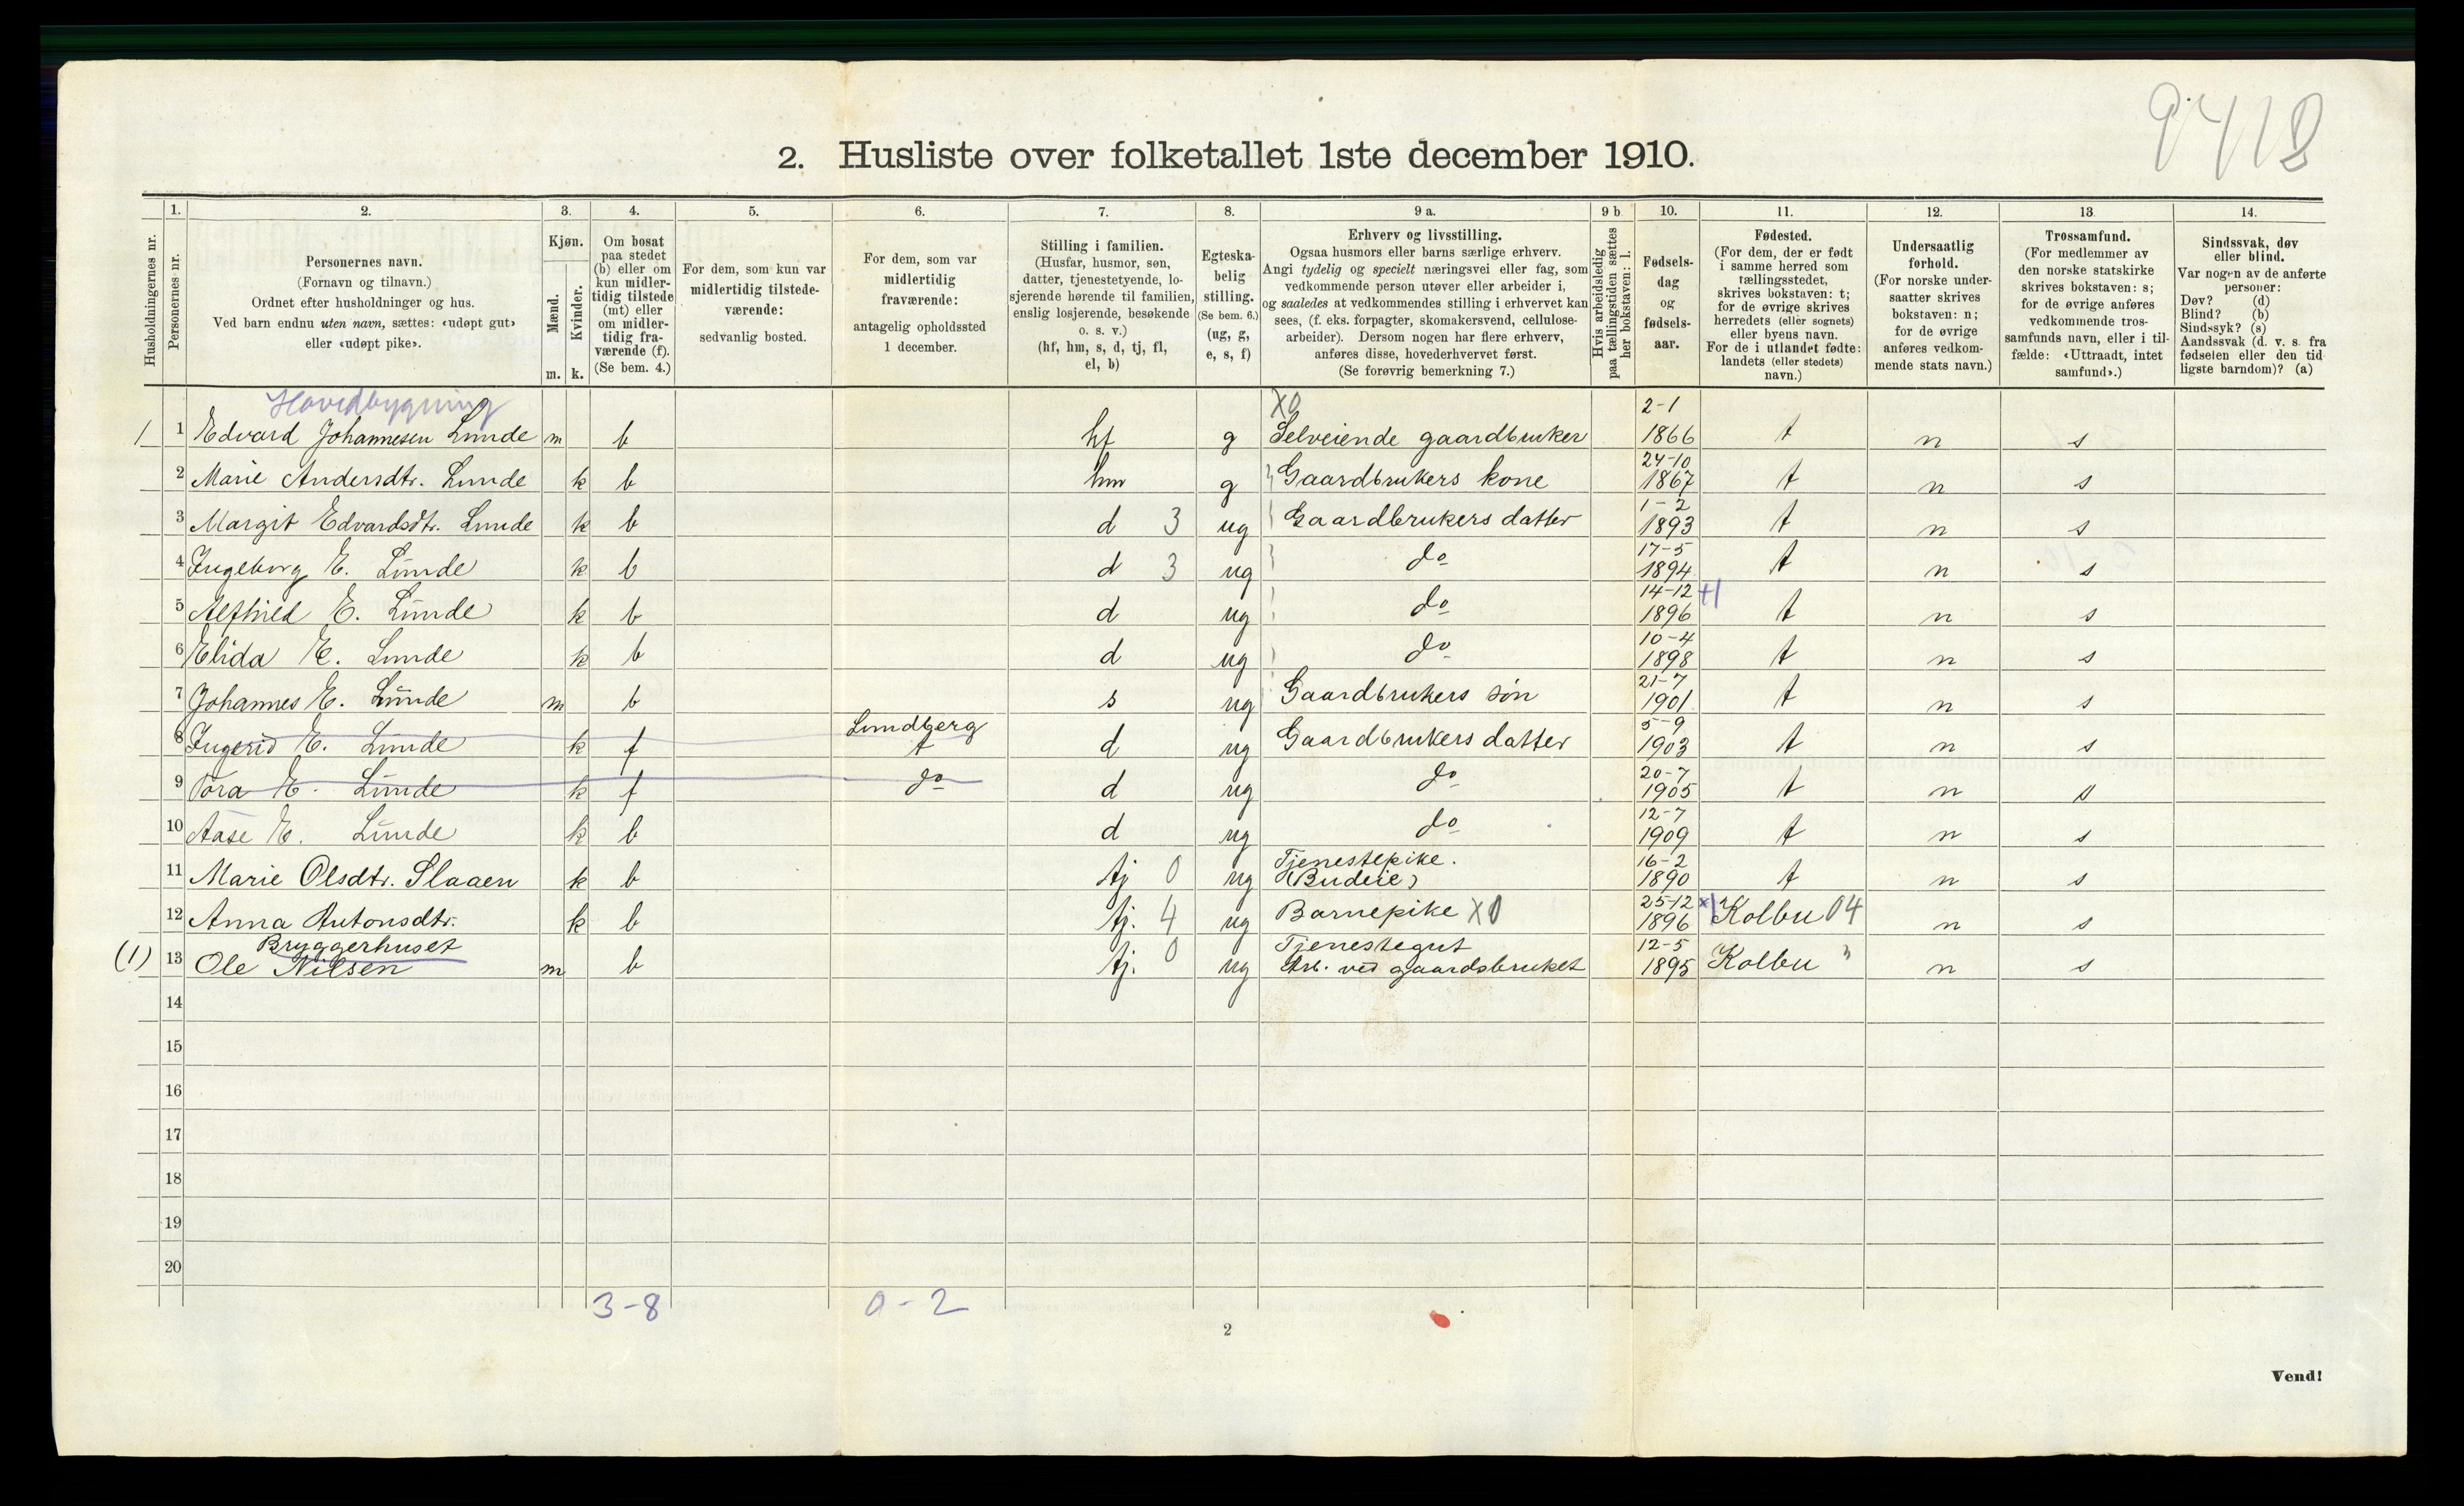 9418
2. Husliste over folketallet 1ste december 1910.
Husholdningernes nr.
1. Personernes nr.
2. Personernes navn.
(Fornavn og tilnavn.)
Ordnet efter husholdninger og hus.
Ved barn endnu uten navn, sættes: «udøpt gut»
eller «udøpt pike».
3. Kjøn.
Mænd. m.
Kvinder. k.
4. Om bosat
paa stedet
(b) eller om
kun midler-
tidig tilstede
(mt) eller
om midler-
tidig fra-
værende (f).
(Se bem. 4.)
5. For dem, som kun var
midlertidig tilstede-
værende:
sedvanlig bosted.
6. For dem, som var
midlertidig
fraværende:
antagelig opholdssted
1 december.
7. Stilling i familien.
(Husfar, husmor, søn,
datter, tjenestetyende, lo-
sjerende hørende til familien,
enslig losjerende, besøkende
o. s. v.)
(hf, hm, s, d, tj, fl,
el, b)
8. Egteska-
belig
stilling.
(Se bem. 6.)
(ug, g,
e, s, f)
9 a. Erhverv og livsstilling.
Ogsaa husmors eller barns særlige erhverv.
Angi tydelig og specielt næringsvei eller fag, som
vedkommende person utøver eller arbeider i,
og saaledes at vedkommendes stilling i erhvervet kan
sees, (f. eks. forpagter, skomakersvend, cellulose-
arbeider). Dersom nogen har flere erhverv,
anføres disse, hovederhvervet først.
(Se forøvrig bemerkning 7.)
9 b
Hvis arbeidsledig
paa tællingstiden sættes
her bokstaven: l.
10. Fødsels-
dag
og
fødsels-
aar.
11. Fødested.
(For dem, der er født
i samme herred som
tællingsstedet,
skrives bokstaven: t;
for de øvrige skrives
herredets (eller sognets)
eller byens navn.
For de i utlandet fødte:
landets (eller stedets)
navn.)
12. Undersaatlig
forhold.
(For norske under-
saatter skrives
bokstaven: n;
for de øvrige
anføres vedkom-
mende stats navn.)
13. Trossamfund.
(For medlemmer av
den norske statskirke
skrives bokstaven: s;
for de øvrige anføres
vedkommende tros-
samfunds navn, eller i til-
fælde: «Uttraadt, intet
samfund».)
14. Sindssvak, døv
eller blind.
Var nogen av de anførte
personer:
Døv? (d)
Blind? (b)
Sindssyk? (s)
Aandssvak (d. v. s. fra
fødselen eller den tid-
ligste barndom)? (a)
Hovedbygning X0
1 1 Edvard Johannesen Lunde m b hf g Selveiende gaardbruker 2-1 1866 t n s
2 Marie Andersdtr. Lunde k b hm g Gaardbrukers kone 24-10 1867 t n s
3 Margit Edvardsdtr. Lunde k b d 3 ug Gaardbrukers datter 1-2 1893 t n s
4 Ingeborg E. Lunde k b d 3 ug do 17-5 1894 t n s
5 Alfhild E. Lunde k b d ug do 14-12 1896 t n s
6 Elida E. Lunde k b d ug do 10-4 1898 t n s
7 Johannes E. Lunde m b s ug Gaardbrukers søn 21-7 1901 t n s
8 Ingerid E. Lunde k f Lundberg t d ug Gaardbrukers datter 5-9 1903 t n s
9 Tora E. Lunde k f do d ug do 20-7 1905 t n s
10 Aase E. Lunde k b d ug do 12-7 1909 t n s
11 Marie Olsdtr. Slaaen k b tj 0 ug Tjenestepike. (Budeie) 16-2 1890 t n s
12 Anna Antonsdtr. k b tj. 4 ug Barnepike X0 25-12 1896 Kolbu 04 n s
Bryggerhuset
(1) 13 Ole Nilsen m b tj. 0 ug Tjenestegut Arb. ved gaardsbruket 12-5 1895 Kolbu " n s
14
15
16
17
18
19
20
3-8 0-2
2
Vend!